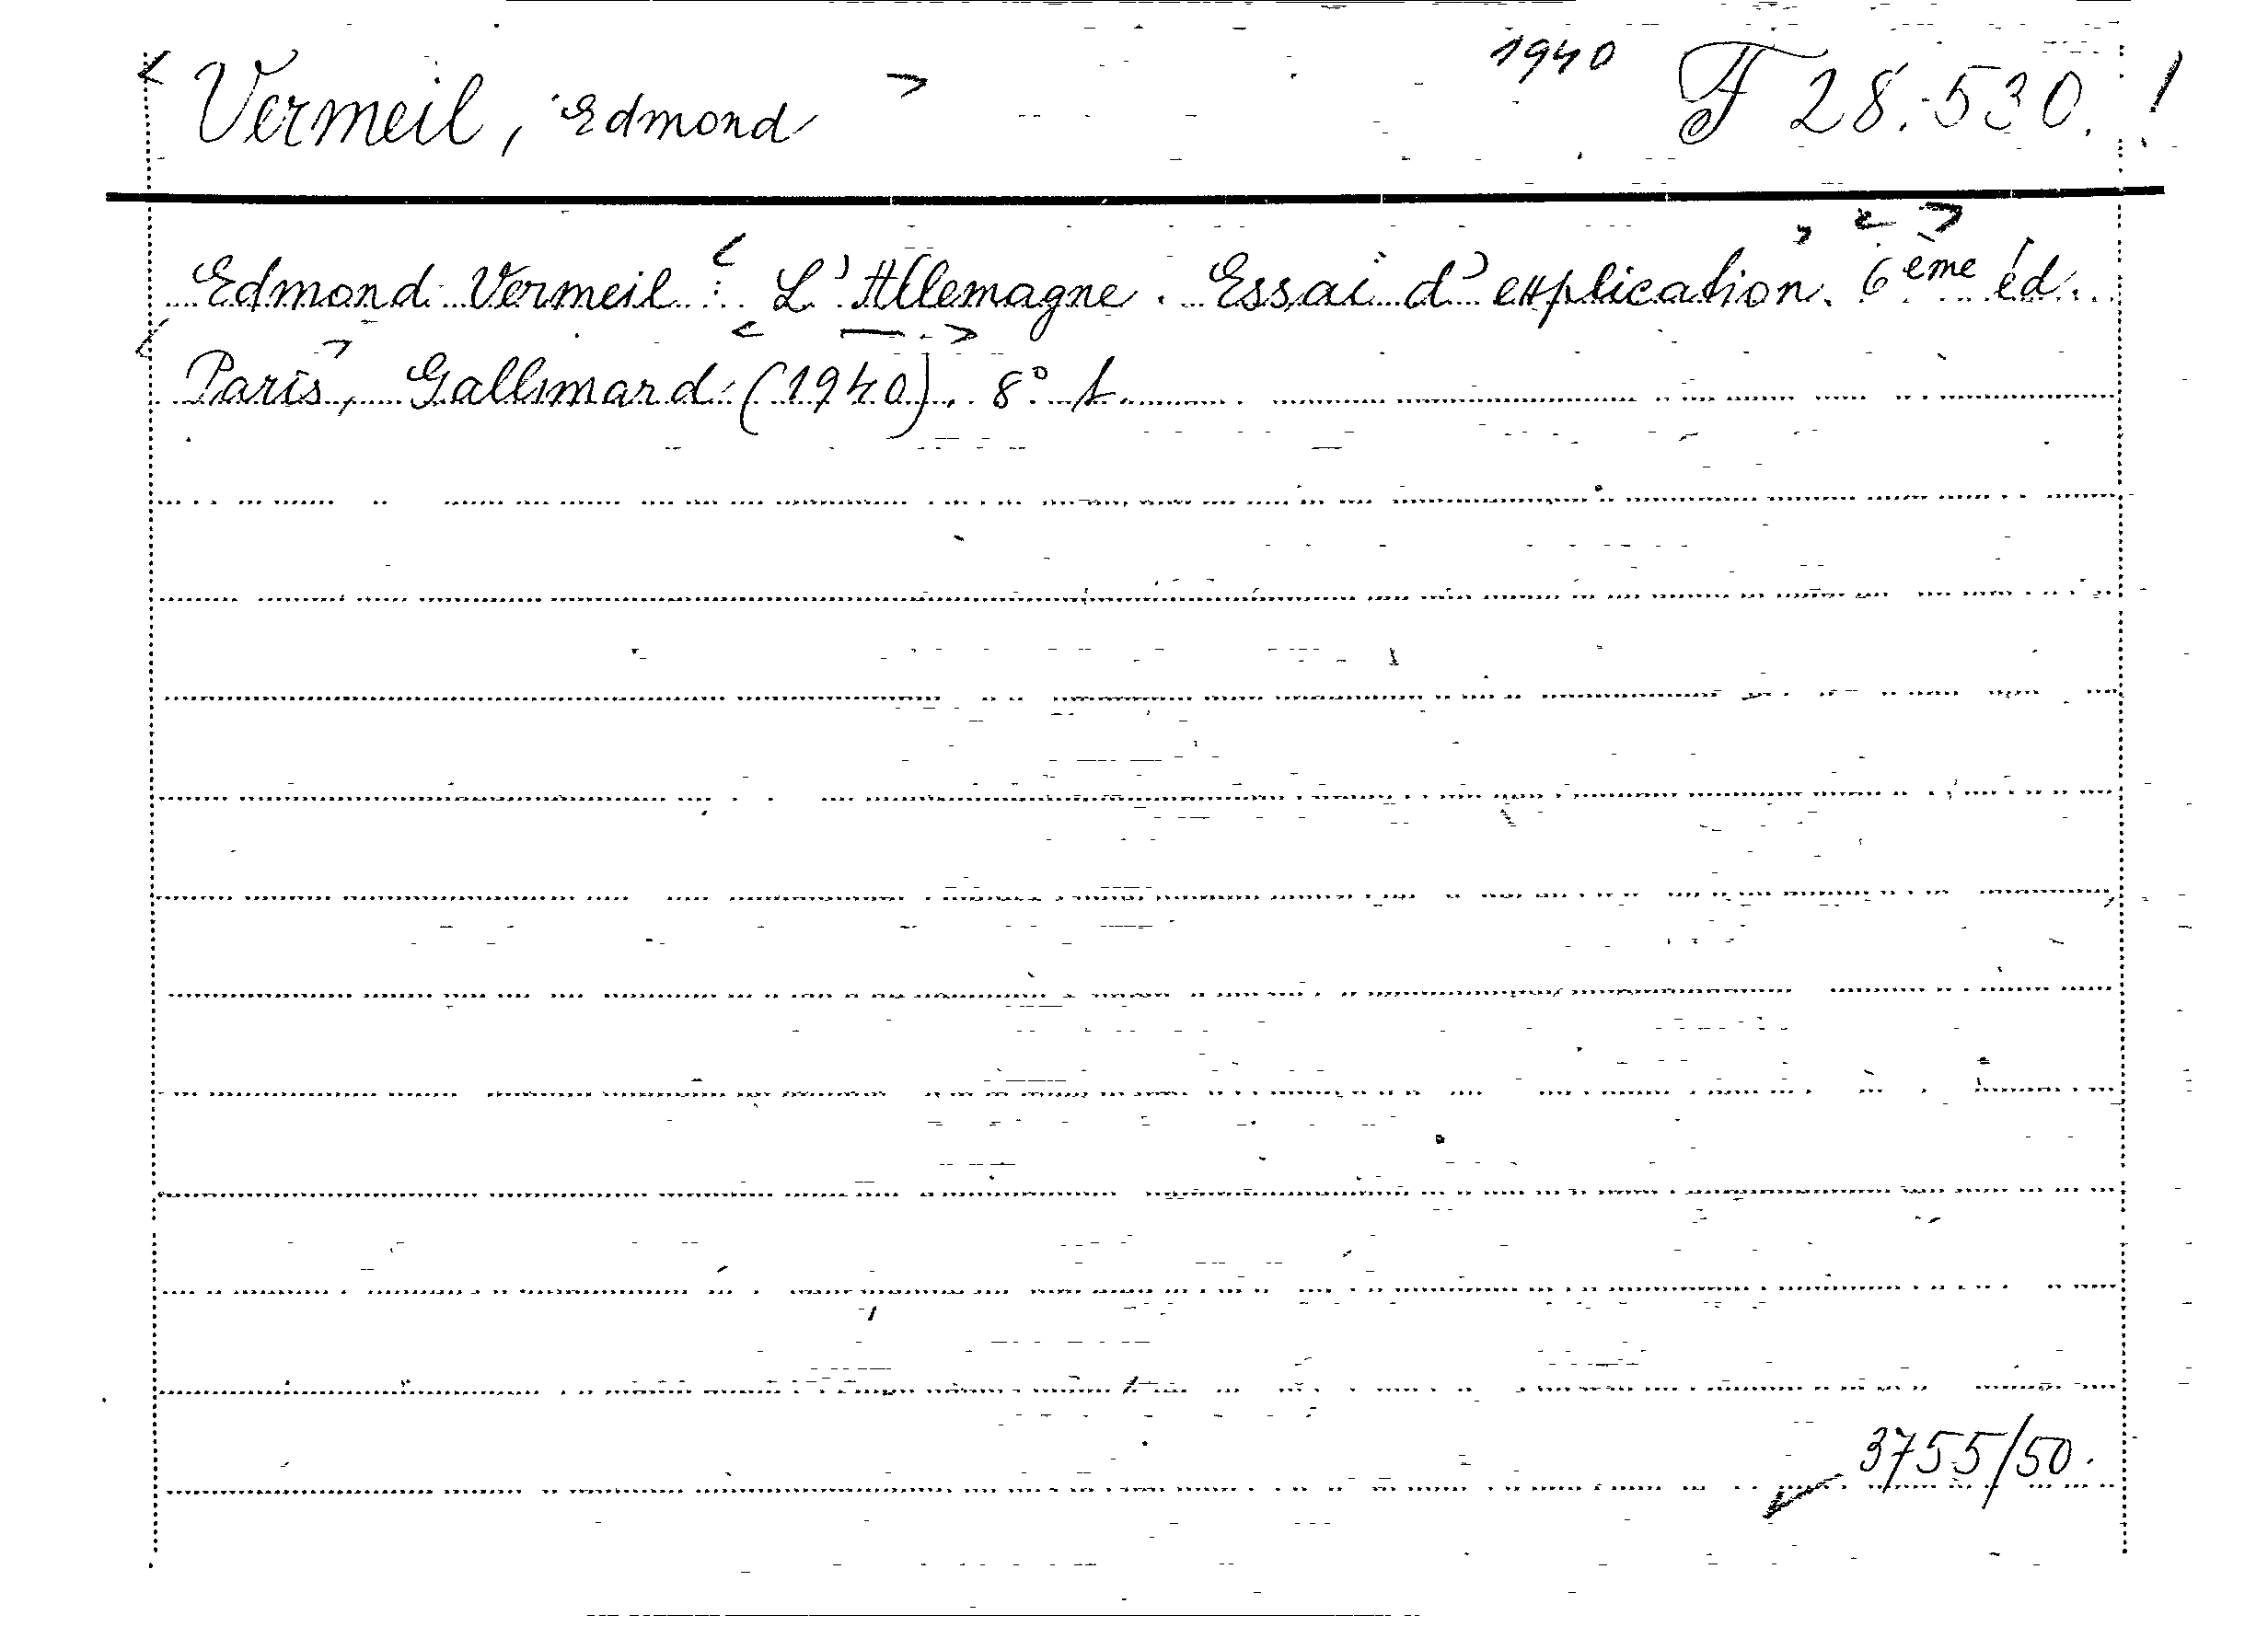 < Vermeil, Edmond > 1940 F 28.530. !
Edmond Vermeil : L'Allemagne. Essai d'explication. 6ème éd.
Paris, Gallimard (1940). 8°
3755/50.